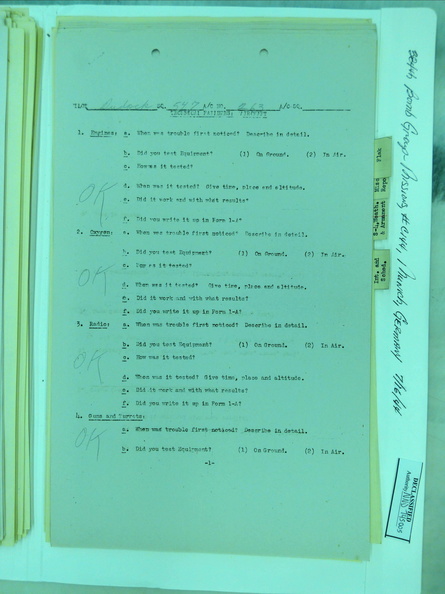 PILOT Dulock NO. 587 A/C NO. 263 A/C-DC.
TECHNICAL FAILURES, AIRCRAFT
1. Engines: a. When was trouble first noticed? Describe in detail.
b. Did you test Equipment? (1) On Ground. (2) In Air.
c. How was it tested?
OK
d. When was it tested? Give time, place and altitude.
e. Did it work and with what results?
f. Did you write it up in Form 1-A?
2. Oxygen: a. When was trouble first noticed? Describe in detail.
b. Did you test Equipment? (1) On Ground. (2) In Air.
c. How as it tested?
OK
d. When was it tested? Give time, place and altitude.
e. Did it work and with what results?
f. Did you write it up in Form 1-A?
3. Radio: a. When was trouble first noticed? Describe in detail.
b. Did you test Equipment? (1) On Ground. (2) In Air.
c. How was it tested?
OK
d. When was it tested? Give time, place and altitude.
e. Did it work and with what results?
f. Did you write it up in Form 1-A?
4. Guns and Turrets:
a. When was trouble first noticed? Describe in detail.
OK
b. Did you test Equipment? (1) On Ground. (2) In Air.
-1-
Flak
& Armament Repo
Int. and
Sched.
Bomb Group Mission Munich, Germany 7/16/44
DECLASSIFIED
Authority NND 745005